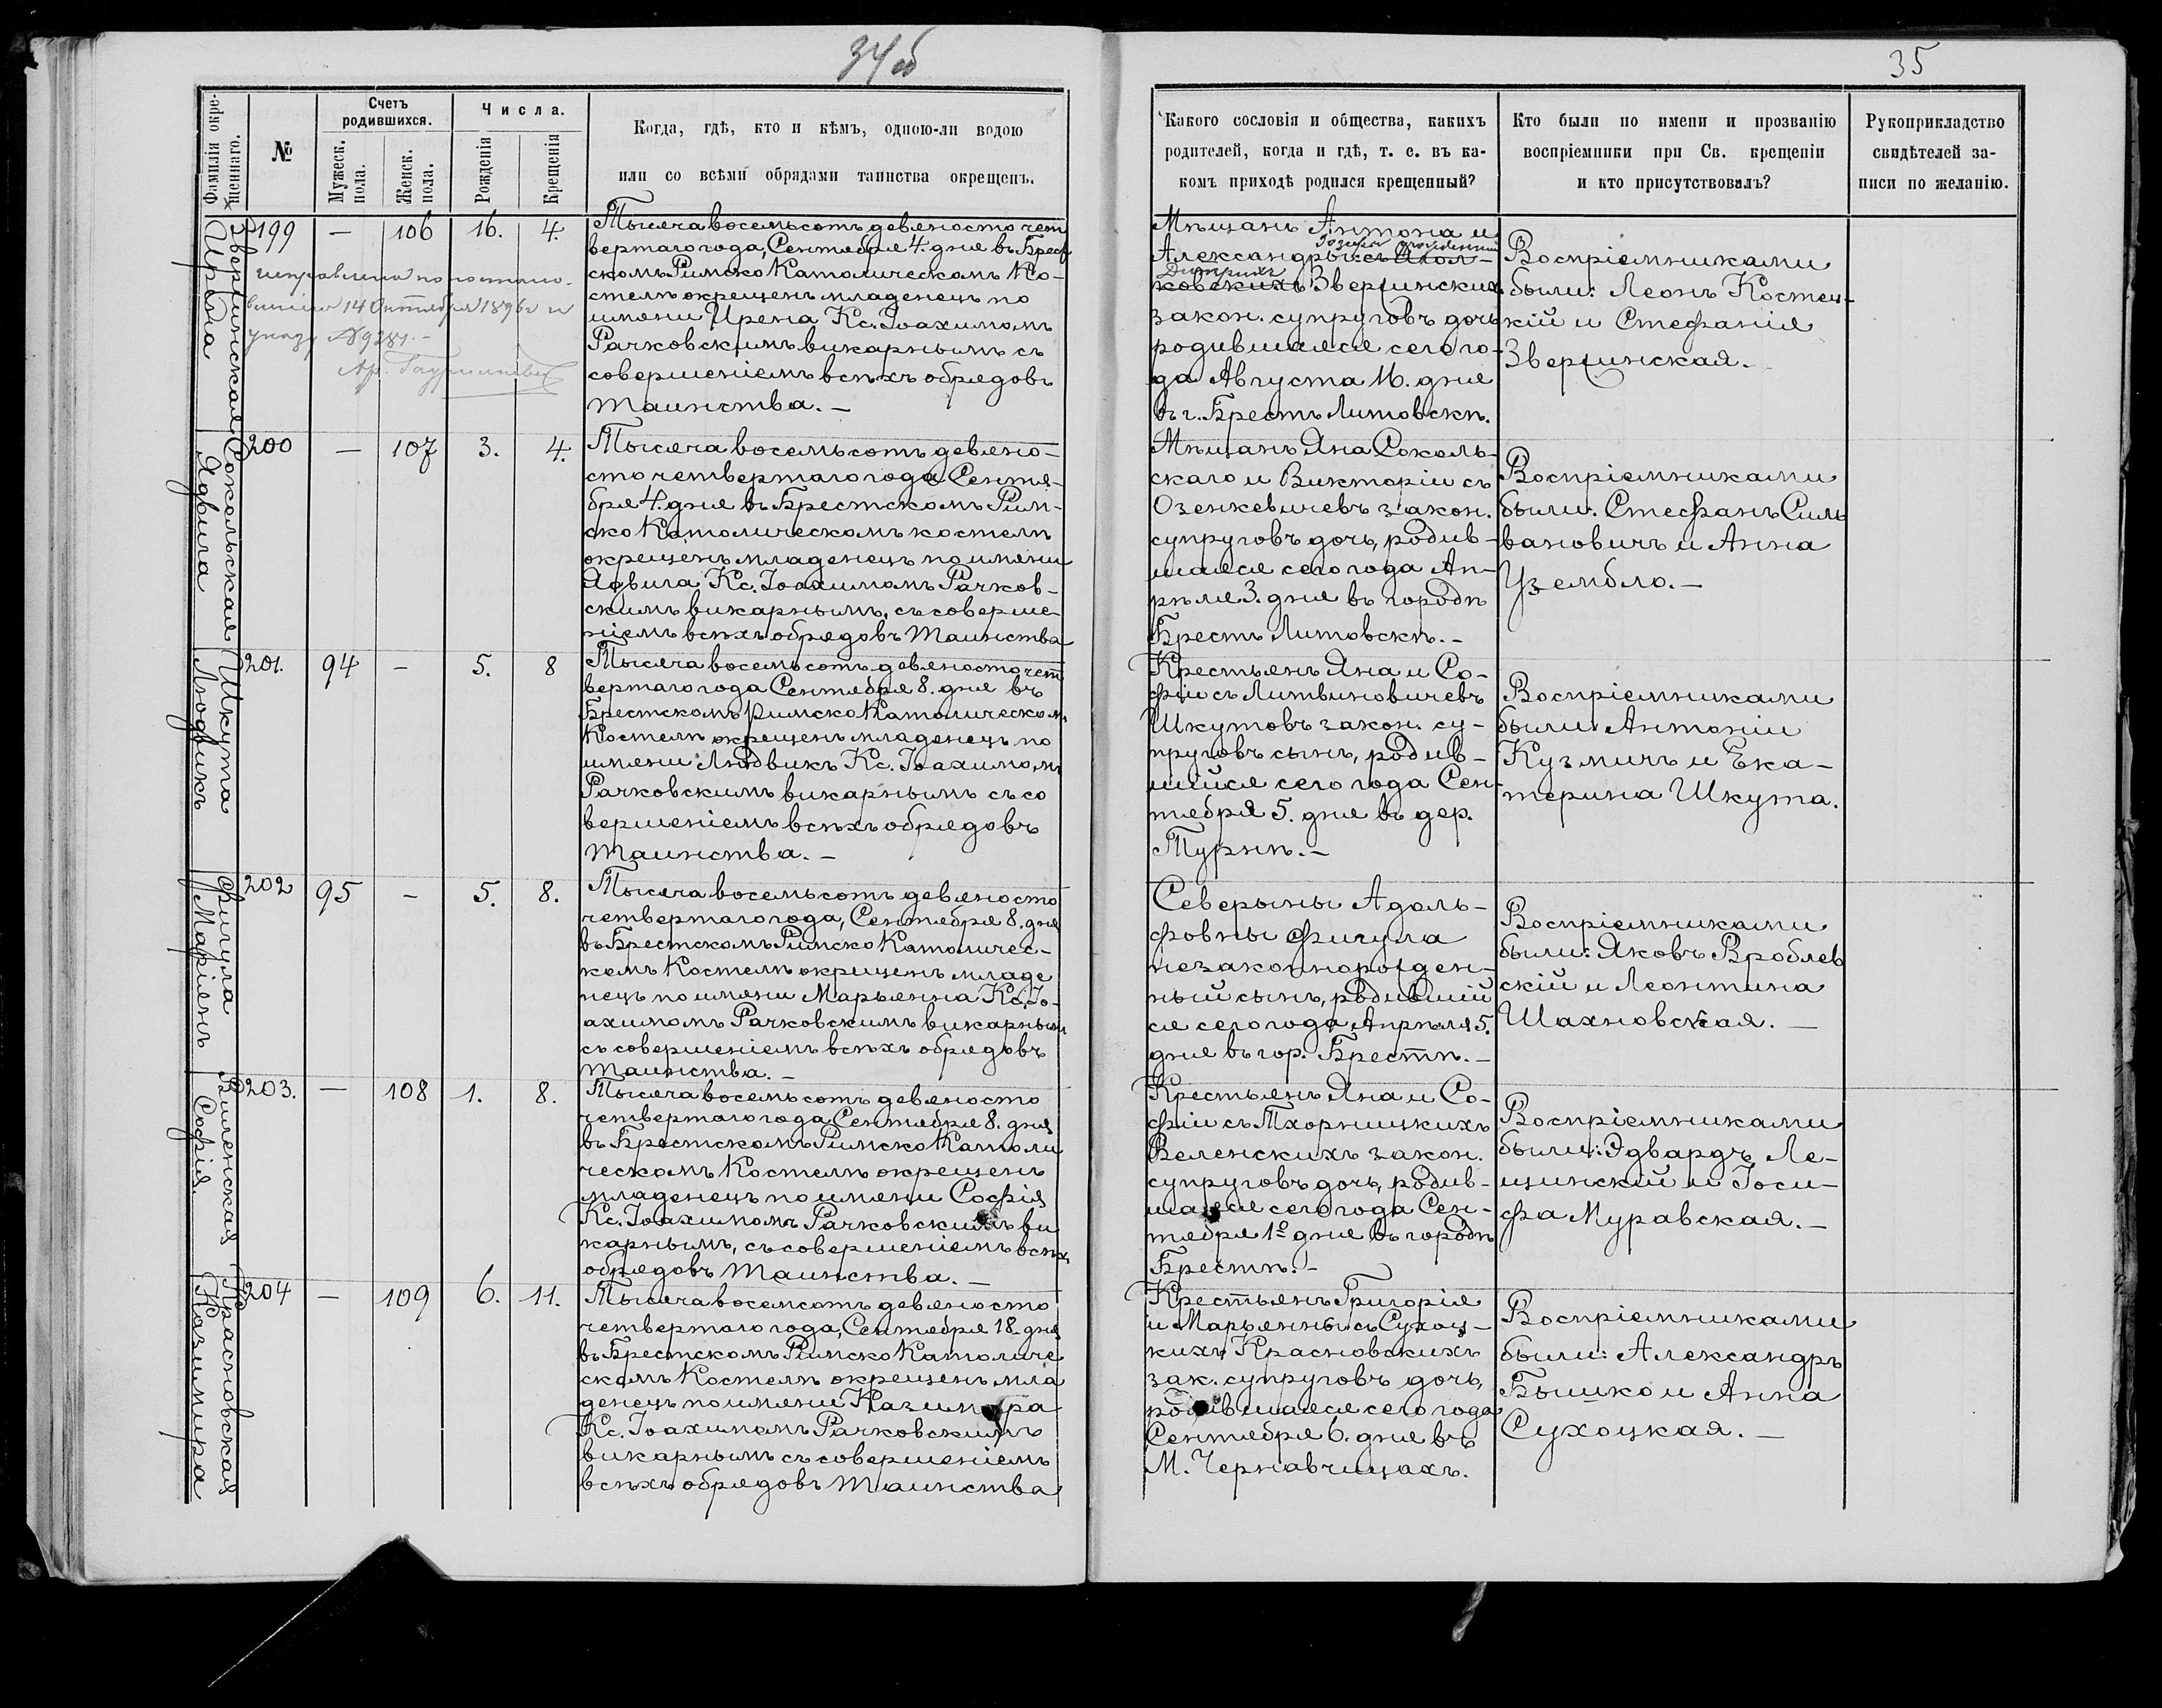 34об
35
Фамилія окре-
щеннаго.
№
Счетъ
родившихся.
Мужеск.
пола.
Женск.
пола.
Числа.
Рожденія
Крещенія
Когда, гдѣ, кто и кѣмъ, одною-ли водою
или со всѣми обрядами таинства окрещенъ.
Какого сословія и общества, какихъ
родителей, когда и гдѣ, т. е. въ ка-
комъ приходѣ родился крещенный?
Кто были по имени и прозванію
воспріемники при Св. крещеніи
и кто присутствовалъ?
Рукоприкладство
свидѣтелей за-
писи по желанію.
Звержинская
Ирена
199 — 106 16. 4.
исправлена по постано-
вленію 14 Октября 1896 г и
указу №9281.-
Тысяча восемьсотъ девяносто чет
вертаго года, Сентября 4 дня въ Брест
скомъ Римско Католическомъ Ко-
стелѣ окрещенъ младенецъ по
имени Ирена Кс. Іоахимомъ
Рачковскимъ викарнымъ съ
совершеніемъ всѣхъ обрядовъ
Таинства. —
Мѣщанъ Антона и
Александры съ
Звержинскихъ
закон. супруговъ дочь
родившаяся сего го-
да Августа 16. дня
въ г. Брестъ Литовскѣ.
Воспріемниками
были: Леонъ Костец-
кій и Стефанія
Звержинская.-
Сокольская
Ядвига
200 — 107 3. 4.
Тысяча восемьсотъ девяно-
сто четвертаго года Сентя-
бря 4. дня въ Брестскомъ Рим-
ско Католическомъ костелѣ
окрещенъ младенецъ по имени
Ядвига Кс. Іоахимомъ Рачков-
скимъ викарнымъ, съ соверше-
ніемъ всѣхъ обрядовъ Таинства
Мѣщанъ Яна Соколь-
скаго и Викторіи съ
Озенкевичевъ закон.
супруговъ дочь, родив-
шаяся сего года Ап-
рѣля 3. дня въ городѣ
Брестъ Литовскѣ.-
Воспріемниками
были: Стефанъ Силь
вановичъ и Анна
Узембло.-
Шкута
Людвикъ
201. 94 — 5. 8
Тысяча восемьсотъ девяносто чет
вертаго года Сентября 8. дня въ
Брестскомъ Римско Католическомъ
Костелѣ окрещенъ младенецъ по
имени Людвикъ Кс. Іоахимомъ
Рачковскимъ викарнымъ съ со
вершеніемъ всѣхъ обрядовъ
Таинства. —
Крестьянъ Яна и Со-
фіи съ Литвиновичевъ
Шкутовъ закон. су-
пруговъ сынъ, родив-
шійся сего года Сен-
тября 5. дня въ дер.
Турнѣ.-
Воспріемниками
были: Антоніи
Кузмичъ и Ека-
терина Шкута.
Фигула
Маріянъ
202 95 — 5. 8.
Тысяча восемьсотъ девяносто
четвертаго года, Сентября 8. дня
въ Брестскомъ Римско Католичес-
комъ Костелѣ окрещенъ младе
нецъ по имени Марьянна Кс. Іо-
ахимомъ Рачковскимъ викарнымъ
съ совершеніемъ всѣхъ обрядовъ
Таинства. —
Северыны Адоль-
фовны Фигула
незаконнорожден-
ный сынъ, родившій
ся сего года Апрѣля 5.
дня въ гор. Брестѣ.-
Воспріемниками
были: Яковъ Вроблев
скій и Леонтина
Шахновская. —
Виленская
Софія.
203. — 108 1. 8.
Тысяча восемьсотъ девяносто
четвертаго года Сентября 8. дня
въ Брестскомъ Римско Католи
ческомъ Костелѣ окрещенъ
младенецъ по имени Софія
Кс. Іоахимомъ Рачковскимъ ви
карнымъ, съ совершеніемъ всѣхъ
обрядовъ Таинства. —
Крестьянъ Яна и Со-
фіи съ Тхорницкихъ
Веленскихъ закон.
супруговъ дочь, родив-
шаяся сего года Сен-
тября 1º дня въ городѣ
Брестѣ.-
Воспріемниками
были: Эдвардъ Ле-
щинскій и Іоси-
фа Муравская.-
Красновская
Казимира
204 — 109 6. 11.
Тысяча восемсотъ девяносто
четвертаго года, Сентября 18 дня
въ Брестскомъ Римско Католиче
скомъ Костелѣ окрещенъ мла
денецъ по имени Казимира
Кс. Іоахимомъ Рачковскимъ
викарнымъ съ совершеніемъ
всѣхъ обрядовъ Таинства
Крестьянъ Григорія
и Марьянны съ Сухоц-
кихъ Красновскихъ
зак. супруговъ дочь,
родившаяся сего года
Сентября 6. дня въ
М. Чернавчицахъ.
Воспріемниками
были: Александръ
Бышко и Анна
Сухоцкая. —